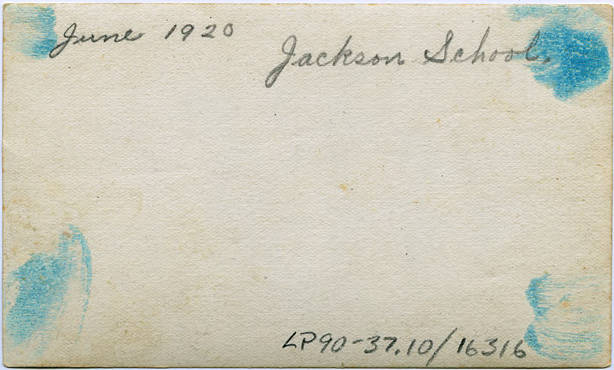 June 1920
Jackson School.
LP90-37.10/16316